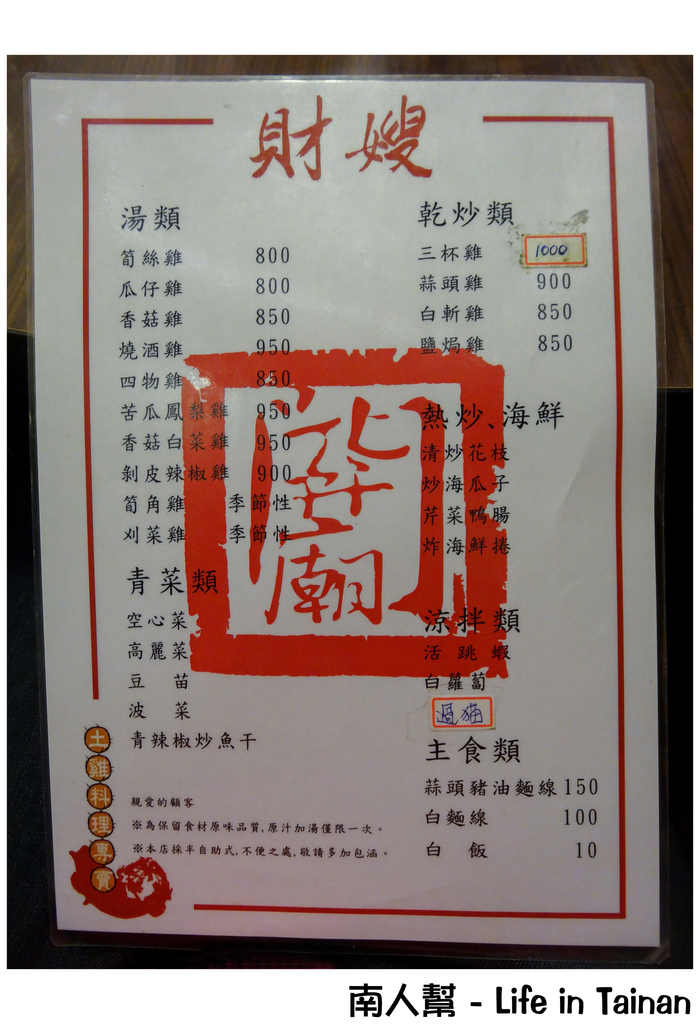 財嫂
湯類
筍絲雞 800
瓜仔雞 800
香菇雞 850
燒酒雞 950
四物雞 850
苦瓜鳳梨雞 950
香菇白菜雞 950
剝皮辣椒雞 900
筍角雞 季節性
刈菜雞 季節性
青菜類
空心菜
高麗菜
豆苗
波菜
青辣椒炒魚干
乾炒類
三杯雞 1000
蒜頭雞 900
白斬雞 850
鹽焗雞 850
熱炒、海鮮
清炒花枝
炒海瓜子
芹菜鴨腸
炸海鮮捲
涼拌類
活跳蝦
白蘿蔔
過猫
主食類
蒜頭豬油麵線 150
白麵線 100
白飯 10
土雞料理專賣
親愛的顧客
※為保留食材原味品質,原汁加湯僅限一次。
※本店採半自助式,不便之處,敬請多加包涵。
廟
南人幫 - Life in Tainan